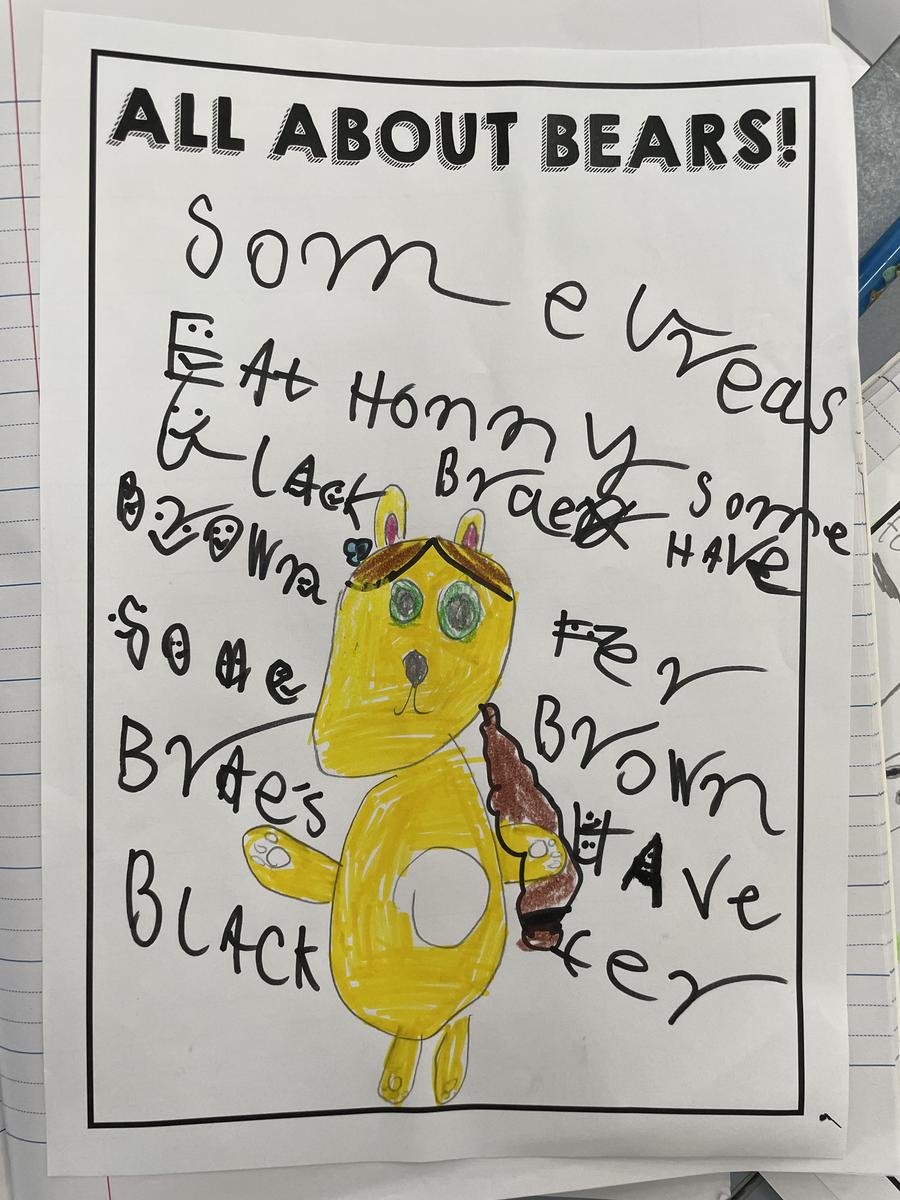 ALL ABOUT BEARS!
Som e
EAt Honny
Black Braer some
Brown HAve
Some Fer
BrAe's Brown
BLACK HAve
fer